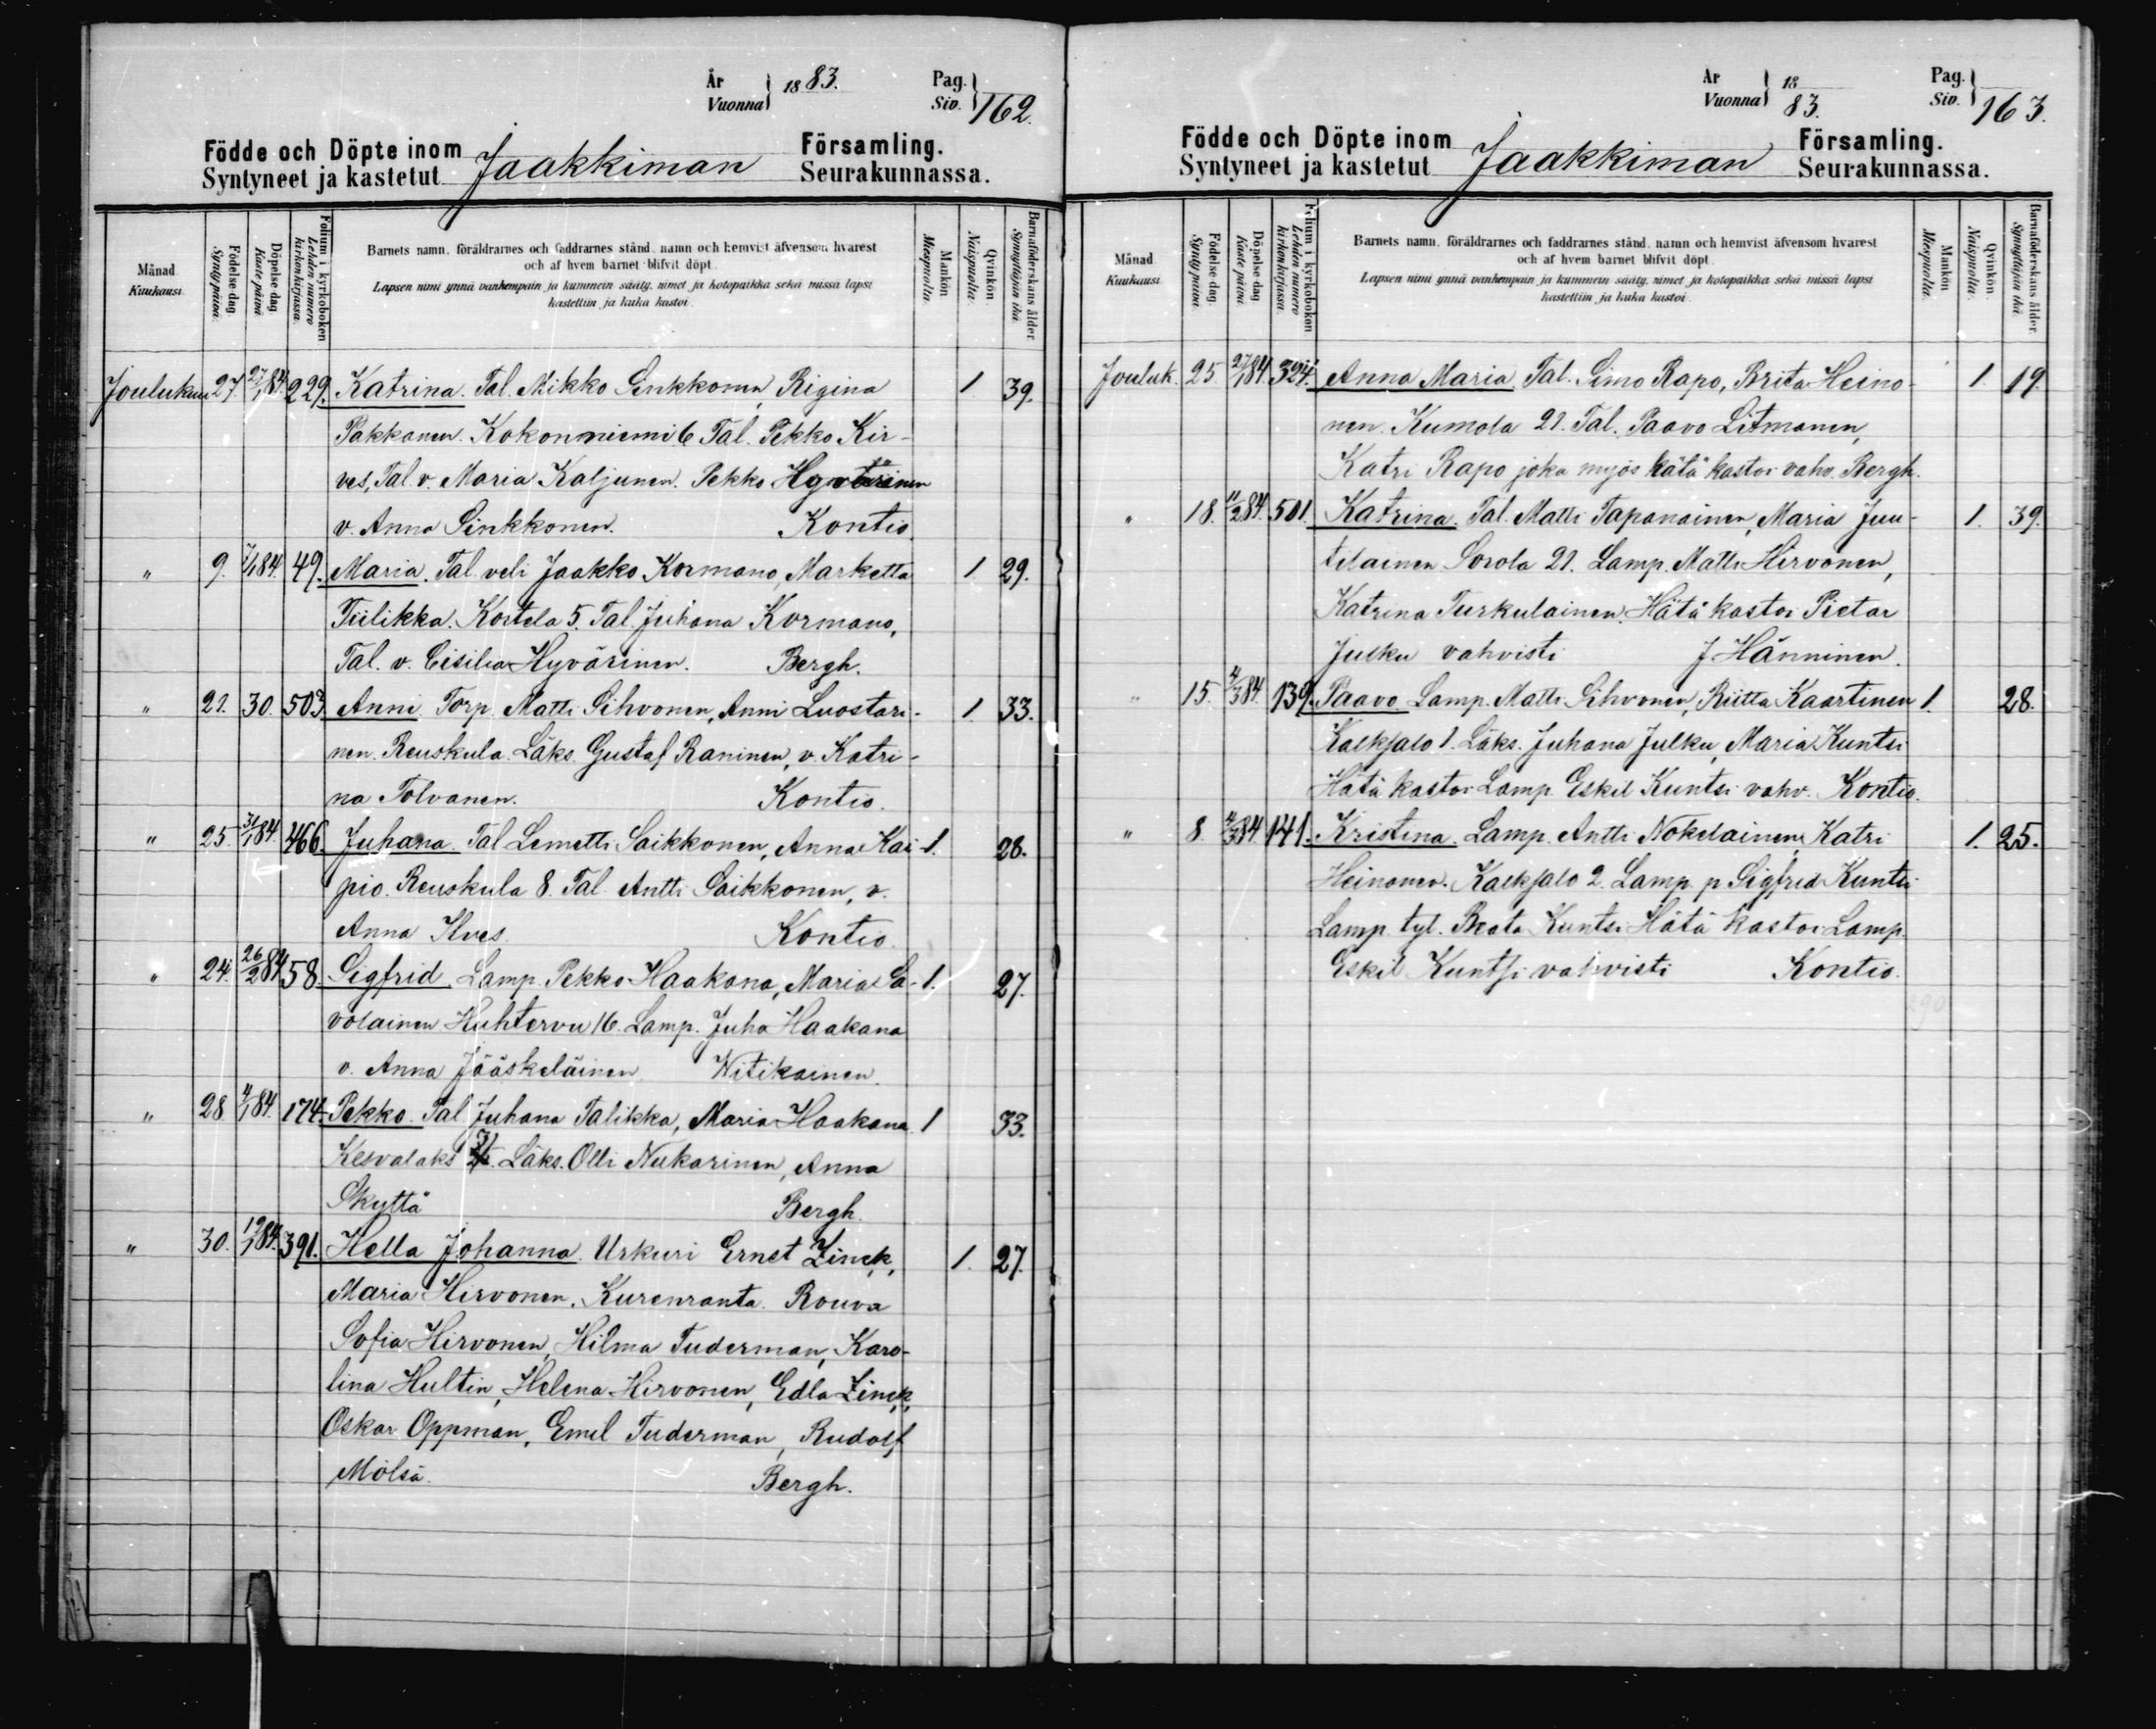 År
Vuonna } 1883.
Pag.
Siv. } 162.
Födde och Döpte inom
Syntyneet ja kastetut Jaakkiman Församling.
Seurakunnassa.
Månad
Kuukausi.
Födelse dag.
Synty päivä.
Döpelse dag
Kaste päivä
Folium i kyrkoboken
Lehden numero
kirkonkirjassa.
Barnets namn, föräldrarnes och faddrarnes stånd, namn och hemvist äfvensom hvarest
och af hvem barnet blifvit döpt.
Lapsen nimi ynnä vanhempain ja kummein sääty, nimet ja kotopaikka sekä missä lapsi
kastettiin ja kuka kastoi.
Mankön
Miespuolta.
Qvinkön
Naispuolta.
Barnaföderskans ålder
Synnyttäjän ikä.
Joulukuu 27. 27/1 84. 229. Katrina. Tal. Mikko Sinkkonen, Rigina 1 39.
Pakkanen. Kokonniemi 6 Tal. Pekko Kir-
ves, Tal. v. Maria Kaljunen. Pekko Hyvärinen
v. Anna Sinkkonen. Kontio.
" 9. 7/1 84. 49. Maria. Tal. veli Jaakko Kormano, Marketta 1. 29.
Tiilikka. Kortela 5. Tal. Juhana Kormano,
Tal. v. Cisilia Hyvärinen. Bergh.
" 21. 30. 503. Anni. Torp. Matti Sihvonen, Anni Luostari- 1. 33.
nen. Reuskula. Läks. Gustaf Raninen, v. Katri-
na Tolvanen. Kontio.
" 25. 31/1 84. 466. Juhana. Tal. Lemetti Saikkonen, Anna Kai- 1. 28.
pio. Reuskula 8. Tal. Antti Saikkonen, v.
Anna Ilves. Kontio.
" 24. 26/2 84 58. Sigfrid. Lamp. Pekko Haakana, Maria Sa- 1. 27.
volainen Huhtervu 16. Lamp. Juho Haakana
v. Anna Jääskeläinen Witikainen.
" 28 4/1 84. 174. Pekko. Tal. Juhana Talikka, Maria Haakana. 1 33.
Kesvalaks Läks. Olli Nukarinen, Anna
Skyttä Bergh.
" 30. 19/1 84. 391. Hella Johanna. Urkuri Ernst Zinck, 1. 27.
Maria Hirvonen. Kurenranta. Rouva
Sofia Hirvonen, Hilma Tuderman, Karo-
lina Hultin, Helena Hirvonen, Edla Zinck,
Oskar Oppman, Emil Tuderman, Rudolf
Mölsä. Bergh.
År
Vuonna } 18
83.
Pag.
Siv. } 163.
Födde och Döpte inom
Syntyneet ja kastetut Jaakkiman Församling.
Seurakunnassa.
Månad
Kuukausi
Födelse dag.
Synty päivä.
Döpelse dag
Kaste päivä.
Folium i kyrkoboken
Lehden numero
kirkonkirjassa.
Barnets namn, föräldrarnes och faddrarnes stånd, namn och hemvist äfvensom hvarest
och af hvem barnet blifvit döpt.
Lapsen nimi ynnä vanhempain ja kummein sääty, nimet ja kotopaikka sekä missä lapsi
kastettiin ja kuka kastoi.
Mankön
Miespuolta.
Qvinkön.
Naispuolta.
Barnaföderskans ålder.
Synnyttäjän ikä.
Jouluk. 25 27/1 84. 324. Anna Maria. Tal. Simo Rapo, Brita Heino- 1. 19.
nen. Kumola 21. Tal. Paavo Litmanen,
Katri Rapo joka myös hätä kastoi vahv. Bergh.
" 18. 11/2 84. 501. Katrina. Tal. Matti Tapanainen, Maria Juu- 1. 39.
tilainen Sorola 21. Lamp. Matti Hirvonen,
Katrina Turkulainen. Hätä kastoi Pietar
Julku vahvisti J Hänninen.
" 15. 4/3 84. 139. Paavo. Lamp. Matti Sihvonen, Riitta Kaartinen 1. 28.
Kalksalo 1. Läks. Juhana Julku, Maria Kuntsi
Hätä kastoi Lamp. Eskil Kuntsi vahv. Kontio.
" 8. 4/3 84. 141. Kristina. Lamp. Antti Nokelainen, Katri 1. 25.
Heinonen. Kalksalo 2. Lamp. p. Sigfrid Kuntsi
Lamp. tyt. Beata Kuntsi Hätä kastoi Lamp.
Eskil Kuntsi vahvisti Kontio.